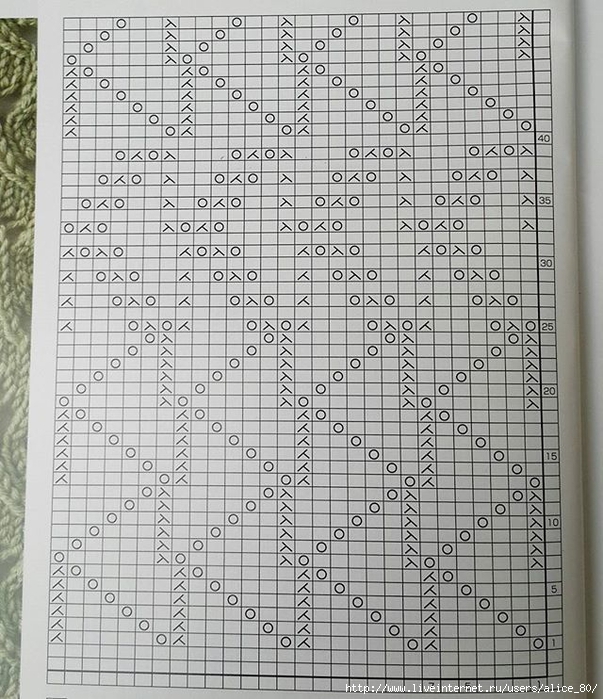 40
35
30
25
20
15
10
5
1
http://www.liveinternet.ru/users/alice_80/